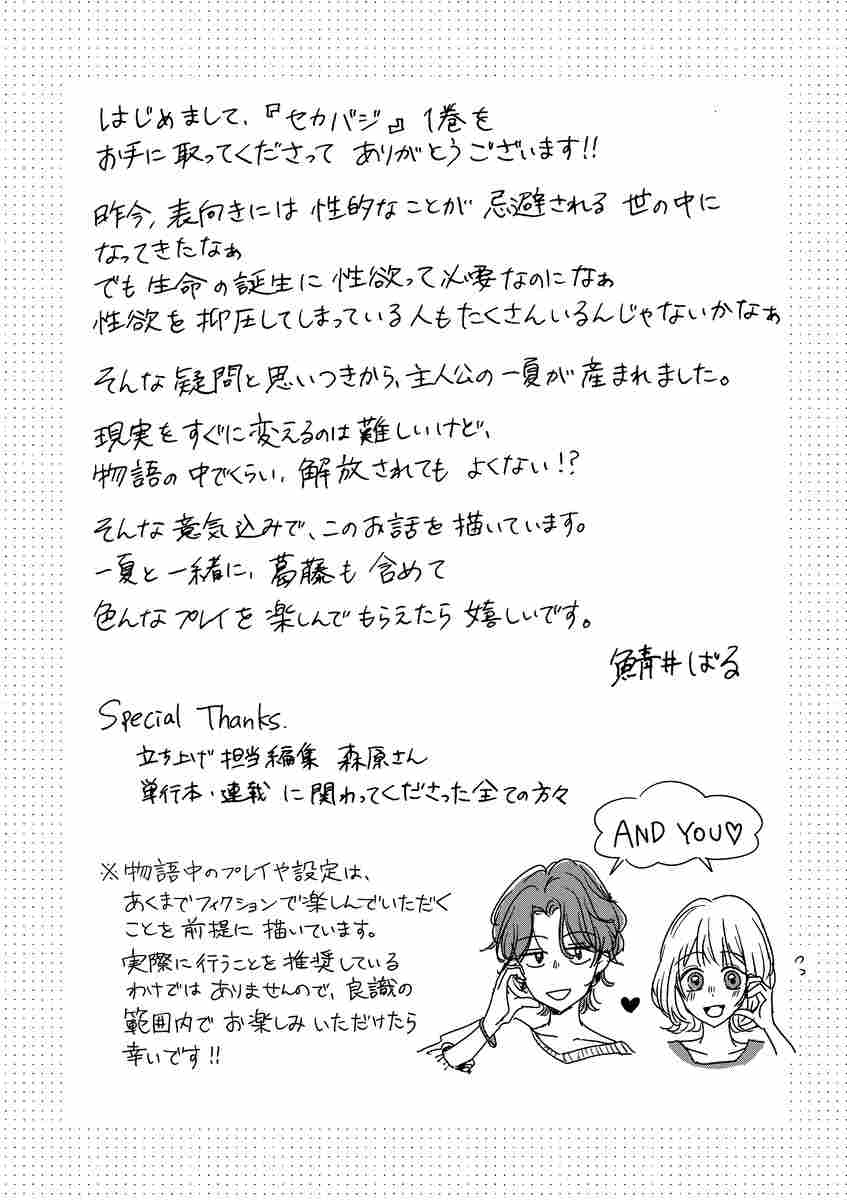 はじめまして、『セカバジ』1巻を
お手に取ってくださって ありがとうございます!!
昨今、表向きには 性的なことが 忌避される 世の中に
なってきたなぁ
でも 生命の誕生に 性欲って必要なのになぁ
性欲を抑圧してしまっている人もたくさんいるんじゃないかなぁ
そんな疑問と思いつきから、主人公の一夏が産まれました。
現実をすぐに変えるのは難しいけど、
物語の中でくらい、解放されても よくない!?
そんな意気込みで、このお話を描いています。
一夏と一緒に、葛藤も含めて
色んなプレイを楽しんでもらえたら嬉しいです。
鯖井ばる
Special Thanks.
立ち上げ担当編集 森原さん
単行本・連載に関わってくださった全ての方々
AND YOU♡
※物語中のプレイや設定は、
あくまでフィクションで楽しんでいただく
ことを前提に描いています。
実際に行うことを推奨している
わけではありませんので、良識の
範囲内でお楽しみいただけたら
幸いです!!